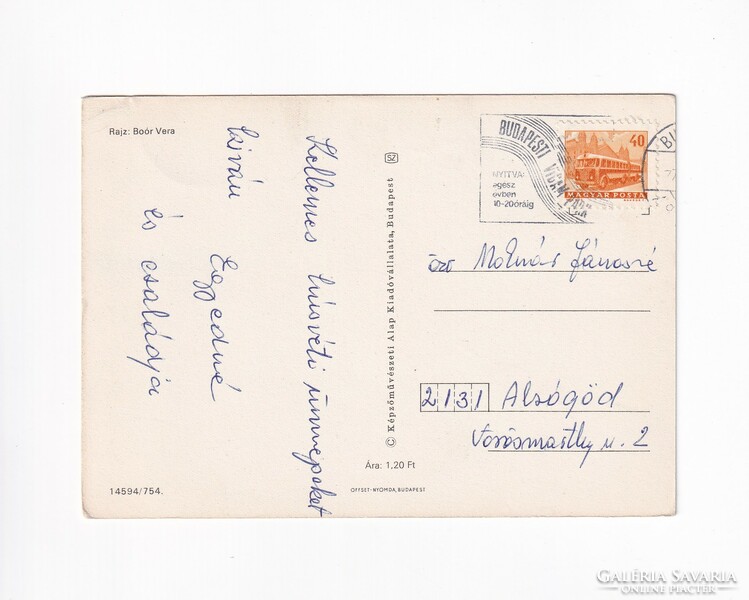 Rajz: Boór Vera
Kellemes húsvéti ünnepeket
kíván
Egyedné
és családja
14594/754.
SZ
© Képzőművészeti Alap Kiadóvállalata, Budapest
Ára: 1,20 Ft
OFFSET-NYOMDA, BUDAPEST
BUDAPESTI VIDÁM PARK
NYITVA:
egész
évben
10-20óráig
40
MAGYAR POSTA
BU
özv Molnár Jánosné
2131 Alsógöd
Vörösmarthy u. 2
GALÉRIA SAVARIA
ONLINE PIACTÉR